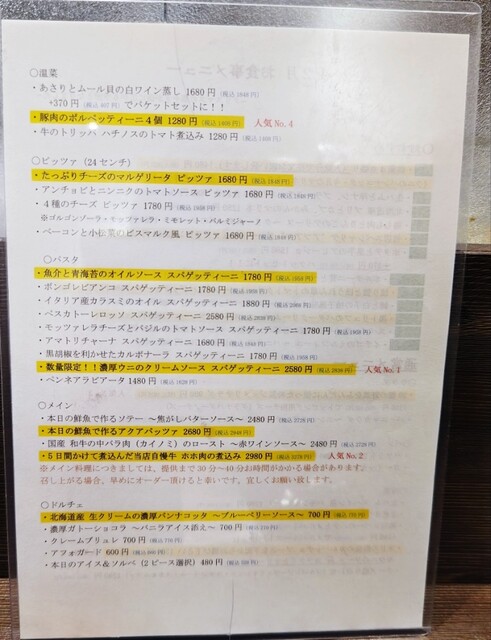 ○温菜
・あさりとムール貝の白ワイン蒸し 1680円(税込1848円)
+370円(税込407円)でバケットセットに!!
・豚肉のポルペッティーニ4個 1280円(税込1408円) 人気No.4
・牛のトリッパ ハチノスのトマト煮込み 1280円(税込1408円)
○ピッツァ(24センチ)
・たっぷりチーズのマルゲリータ ピッツァ 1680円(税込1848円)
・アンチョビとニンニクのトマトソース ピッツァ 1680円(税込1848円)
・4種のチーズ ピッツァ 1780円(税込1958円)
※ゴルゴンゾーラ・モッツァレラ・ミモレット・パルミジャーノ
・ベーコンと小松菜のビスマルク風 ピッツァ 1680円(税込1848円)
○パスタ
・魚介と青海苔のオイルソース スパゲッティーニ 1780円(税込1958円)
・ボンゴレビアンコ スパゲッティーニ 1780円(税込1958円)
・イタリア産カラスミのオイル スパゲッティーニ 1880円(税込2068円)
・ペスカトーレロッソ スパゲッティーニ 2580円(税込2838円)
・モッツァレラチーズとバジルのトマトソース スパゲッティーニ 1780円(税込1958円)
・アマトリチャーナ スパゲッティーニ 1680円(税込1848円)
・黒胡椒を利かせたカルボナーラ スパゲッティーニ 1780円(税込1958円)
・数量限定!!濃厚ウニのクリームソース スパゲッティーニ 2580円(税込2838円) 人気No.1
・ペンネアラビアータ 1480円(税込1628円)
○メイン
・本日の鮮魚で作るソテー ~焦がしバターソース~ 2480円(税込2728円)
・本日の鮮魚で作るアクアパッツァ 2680円(税込2948円)
・国産 和牛の中バラ肉(カイノミ)のロースト ~赤ワインソース~ 2480円(税込2728円)
・5日間かけて煮込んだ当店自慢牛 ホホ肉の煮込み 2980円(税込3278円) 人気No.2
※メイン料理につきましては、提供まで30分~40分お時間がかかる場合があります。
召し上がる場合、早めにオーダー頂けると幸いです。宜しくお願い致します。
○ドルチェ
・北海道産 生クリームの濃厚パンナコッタ ~ブルーベリーソース~ 700円(税込770円)
・濃厚ガトーショコラ ~バニラアイス添え~ 700円(税込770円)
・クレームブリュレ 700円(税込770円)
・アフォガード 600円(税込660円)
・本日のアイス&ソルベ(2ピース選択) 480円(税込528円)